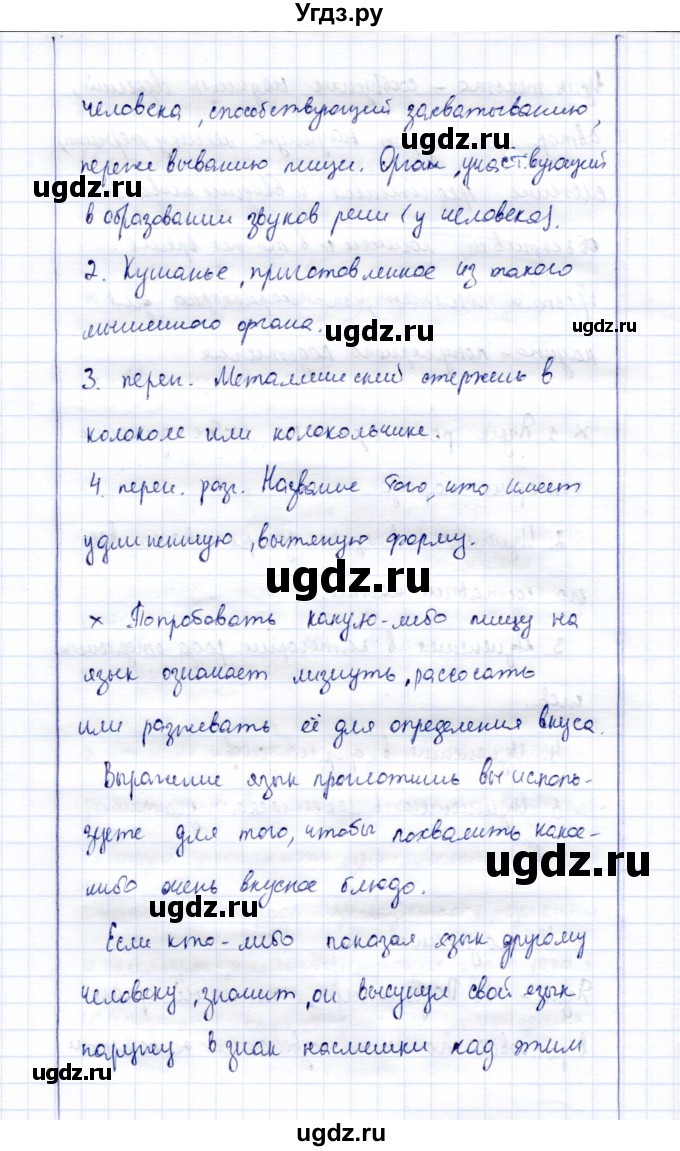 Угдз.ру
человека, способствующий захватыванию,
пережевыванию пищи. Орган, участвующий
ugdz.ru
в образовании звуков речи (у человека).
ugdz.ru
2. Кушанье, приготовленное из такого
мышечного органа.
ugdz.ru
ugdz.ru
3. перен. Металлический стержень в
колоколе или колокольчике.
4. перен. разг. Название того, что имеет
удлиненную, вытянутую форму.
ugdz.ru
x Попробовать какую-либо пищу на
язык означает лизнуть, рассосать
ugdz.ru
или разжевать её для определения вкуса.
Выражение язык проглотишь вы исполь-
зуете для того, чтобы похвалить какое-
ugdz.ru
либо очень вкусное блюдо.
ugdz.ru
Если кто-либо показал язык другому
человеку, значит, он высунул свой язык
наружу в знак насмешки над этим
ugdz.ru
ugdz.ru
ugdz.ru